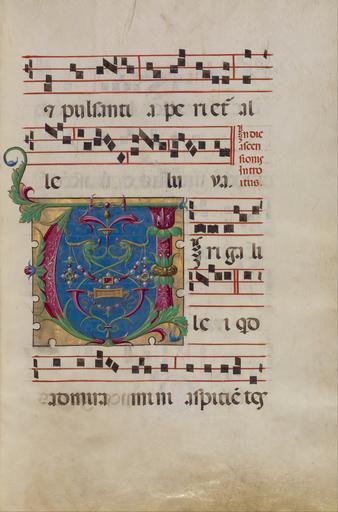 ⁊ pulsanti ape riet᷑ al
le lu ya.
In die
ascen
sionis
intro
itus.
V iri ga li
le i qd̄
admira mini aspiciētes